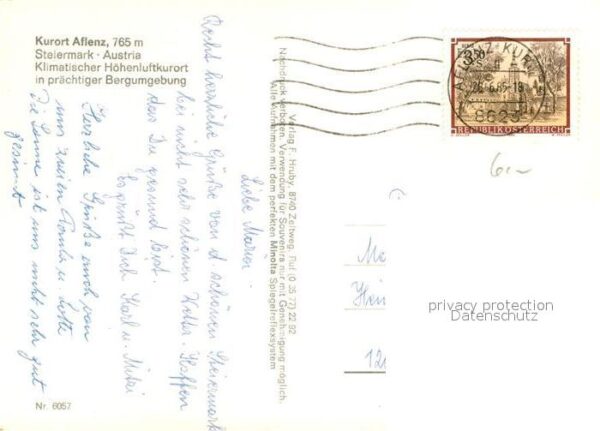 Kurort Aflenz, 765 m
Steiermark · Austria
Klimatischer Höhenluftkurort
in prächtiger Bergumgebung
Liebe Maria!
Recht herzliche Grüße von d. schönen Steiermark
bei nicht sehr schönem Wetter. Hoffen
das Du gesund bist.
Es grüßt Dich Karl u. Mitzi
Herzliche Grüße auch von
uns zweien Paula u. Lotte
Die Sonne ist uns nicht sehr gut
gesinnt
Nr. 6057
Verlag F. Hruby, 8740 Zeltweg, Ruf (0 35 77) 22 92
Nachdruck verboten. Verwendung für Souvenirs nur mit Genehmigung möglich.
Alle Aufnahmen mit dem perfekten Minolta Spiegelreflexsystem
AFLENZ KURORT
26.6.85-18
8623
REPUBLIK ÖSTERREICH
6.-
Ma
Hein
12
privacy protection
Datenschutz